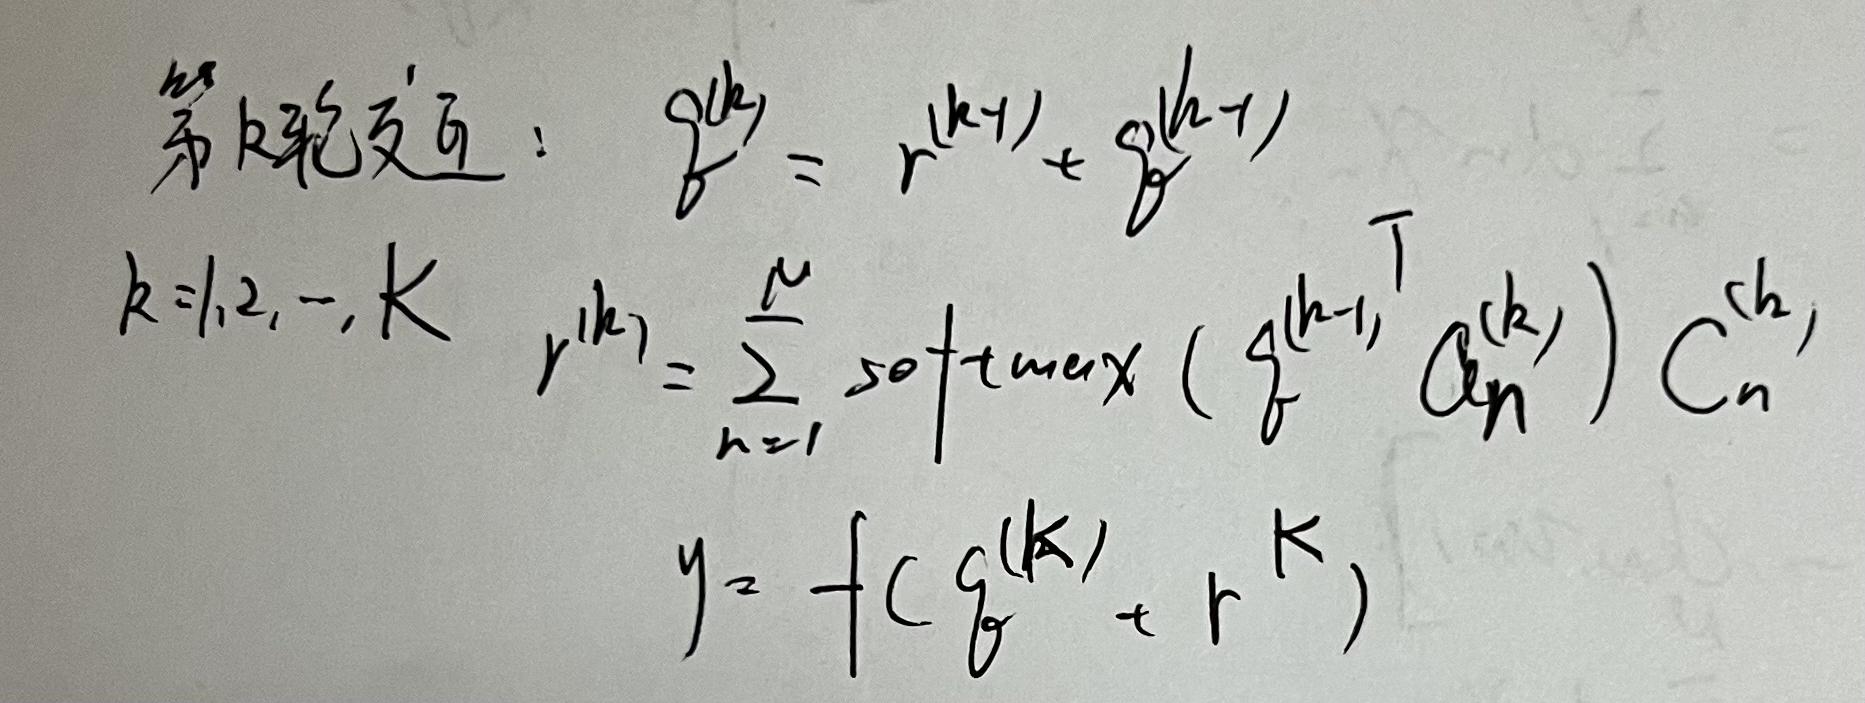 第k轮交互: q^{(k)} = r^{(k-1)} + q^{(k-1)}
k=1,2,…,K
r^{(k)} = \sum_{n=1}^{N} softmax(q^{(k-1)T} a_n^{(k)}) C_n^{(k)}
y = f(q^{(K)} + r^K)